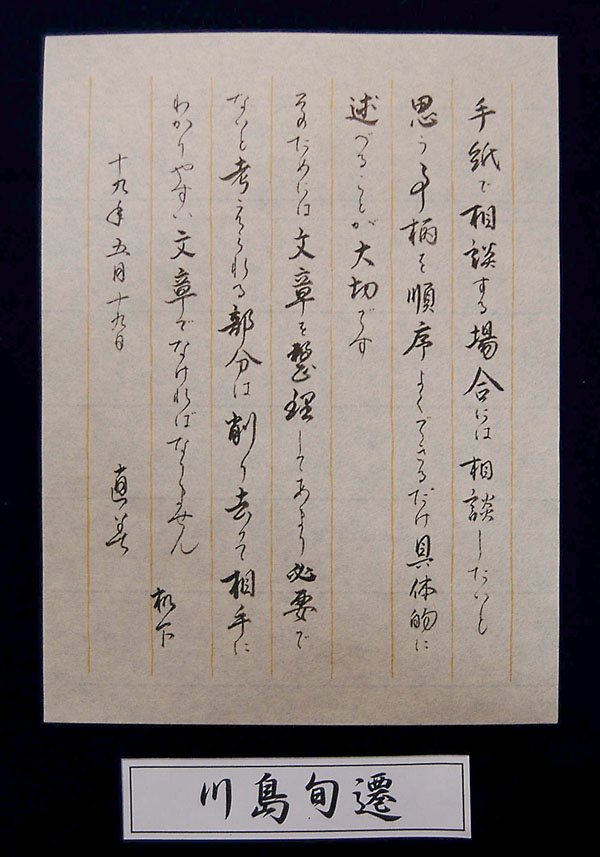 手紙で相談する場合には相談したいと
思う事柄を順序よくできるだけ具体的に
述べることが大切です
そのためには文章を整理してあまり必要で
ないと考えられる部分は削り去って相手に
わかりやすい文章でなければなりません
十九年五月十九日
直美
机下
川島旬遷